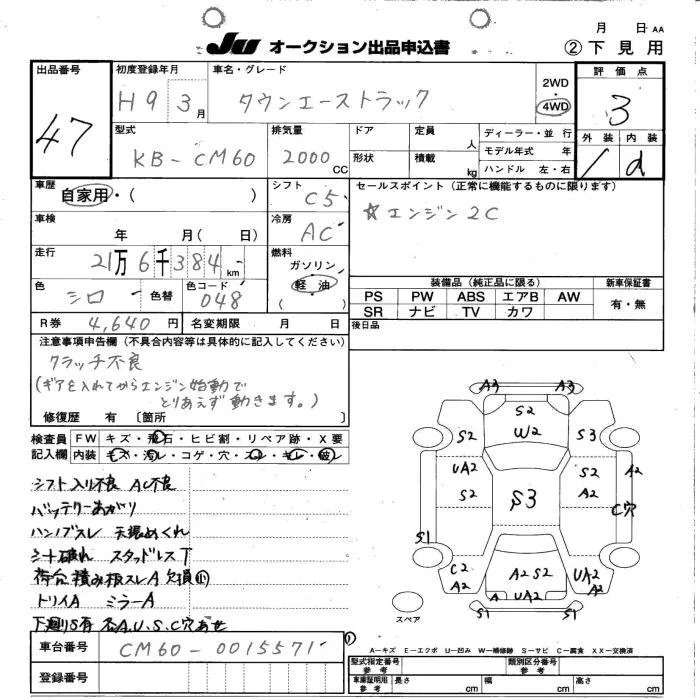 月 日 AA
JU オークション出品申込書 ② 下見用
出品番号
47
初度登録年月
H9 3月
車名・グレード
タウンエーストラック
2WD
4WD
評価点
3
外装 内装
/ d
型式
KB-CM60
排気量
2000 CC
ドア
形状
定員 人
積載 kg
ディーラー・並行
モデル年式 年
ハンドル 左・右
車歴
自家用・( )
シフト
C5
セールスポイント(正常に機能するものに限ります)
☆エンジン2C
車検
年 月( 日)
冷房
AC
走行
21万6千384km
燃料
ガソリン
軽油
( )
色
シロ
色替
色コード
048
装備品(純正品に限る) 新車保証書
PS PW ABS エアB AW 有・無
SR ナビ TV カワ
R券 4,640円 名変期限 月 日
後日品
注意事項申告欄(不具合内容等は具体的に記入してください)
クラッチ不良
(ギアを入れてからエンジン始動で
とりあえず動きます。)
修復歴 有 〔箇所 〕
検査員
記入欄
FW キズ・飛石・ヒビ割・リペア跡・X要
内装 キズ・汚レ・コゲ・穴・スレ・キレ・破レ
シフト入り不良 AC不良
バッテリーあがり
ハンドブスレ 天張めくれ
シート破れ スタッドレスT
荷台積み板スレA 欠損
トリイA ミラーA
下廻りS有 各A.U.S.C穴あせ
車台番号
CM60-0015571
登録番号
A3 A3
S2
W2
S2 S3
UA2
S2
S3
S2
A2
A2
C穴
S1 S1
C2
A2
A2 S2
A UA2
UA2
A2
S1 S1
スペア
①
A-キズ E-エクボ U-凹み W-補修跡 S-サビ C-腐食 XX-交換済
型式指定番号
参考
類別区分番号
参考
車庫証明用
参考
長さ cm 幅 cm 高さ cm